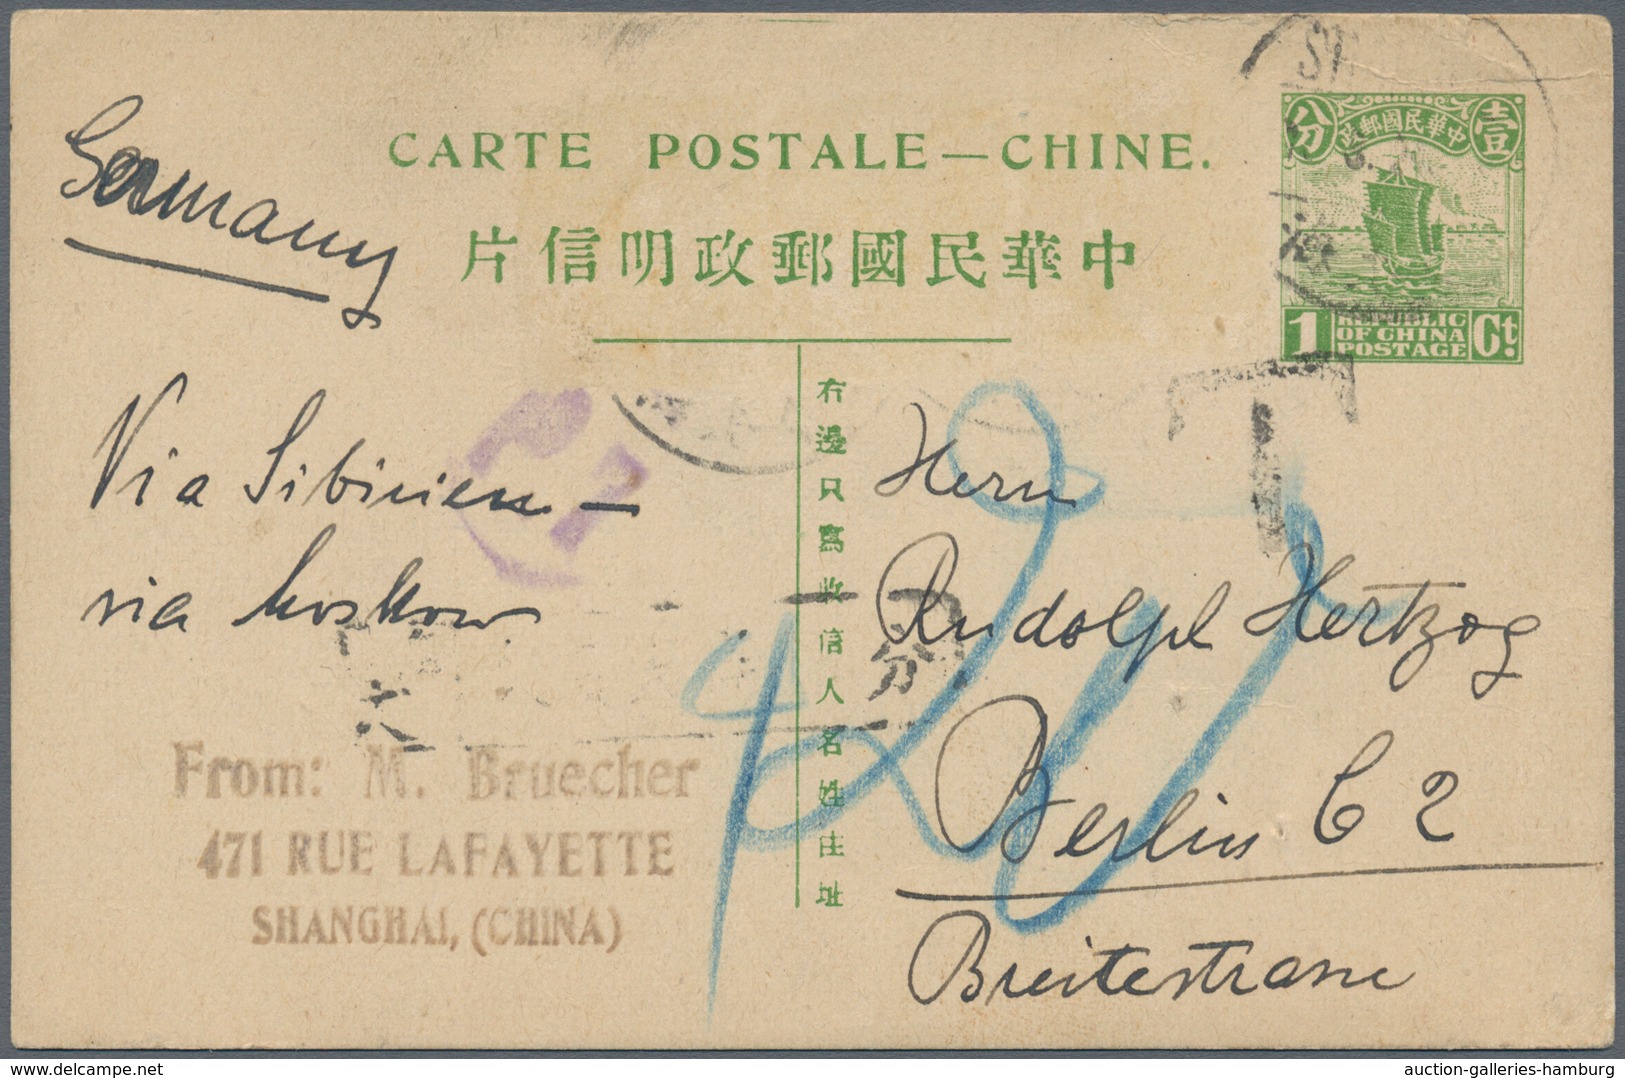 CARTE POSTALE — CHINE.
中華民國郵政明信片
Germany
Via Sibirien —
via Moskow
From: M. Bruecher
471 RUE LAFAYETTE
SHANGHAI, (CHINA)
右邊只寫收信人名姓住址
Herrn
Rudolph Hertzog
Berlin C 2
Breitestrasse
分 中華民國郵政 壹
1 REPUBLIC OF CHINA POSTAGE Ct.
T
分
auction-galleries-hamburg